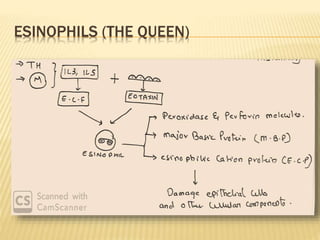 ESINOPHILS (THE QUEEN)
→ TH
→ M
IL3, IL5
+
E.C.F
EOTAXIN
ESINOPHIL
→ Peroxidase & Perforin molecules.
→ major Basic Protein (M.B.P)
→ esinophilic Cation protein (E.C.P)
Damage epithelial cells
and other cellular components.
CS Scanned with
CamScanner